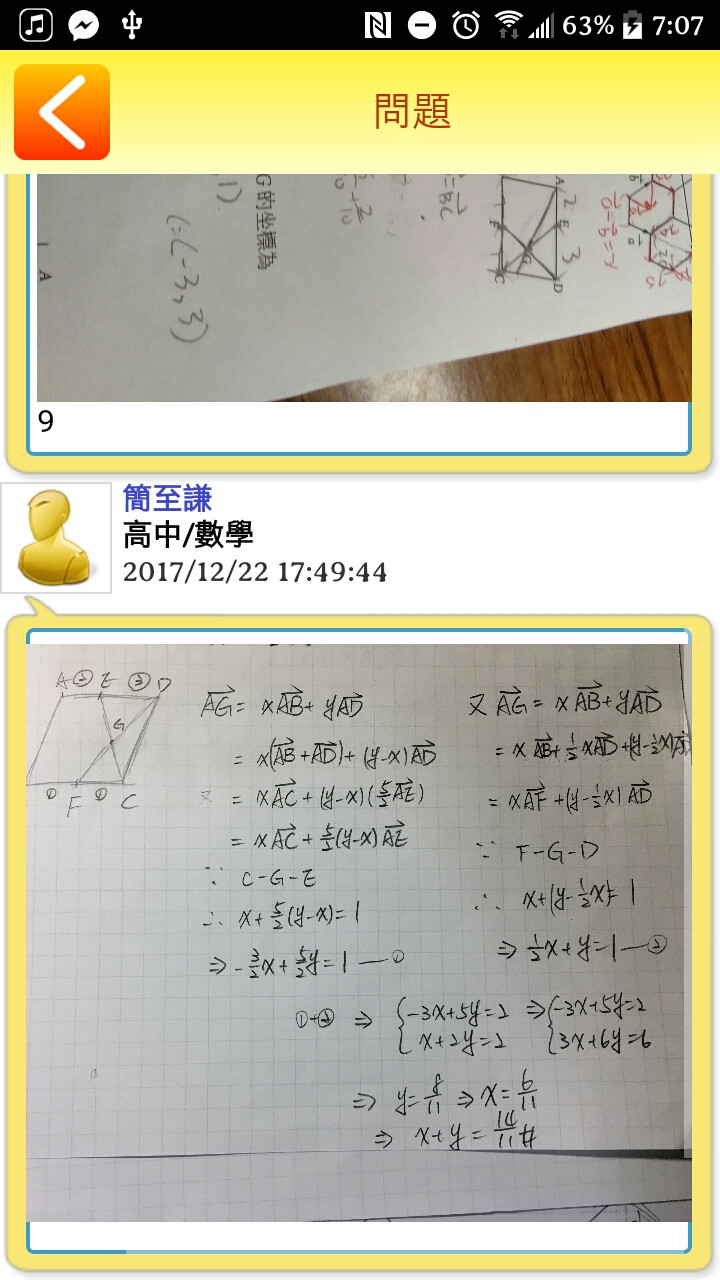 63% 7:07
問題
G的坐標為
(-3,3)
A 2 E 3 D
F G C
9
簡至謙
高中/數學
2017/12/22 17:49:44
A ② E ③ D
G
① F ① C
AG = xAB + yAD
= x(AB + AD) + (y-x)AD
= xAC + (y-x)(5/2 AE)
= xAC + 5/2(y-x)AE
∵ C-G-E
∴ x + 5/2(y-x) = 1
⇒ -3/2x + 5/2y = 1 —①
又 AG = xAB + yAD
= xAB + 1/2xAD + (y-1/2x)AD
= xAF + (y-1/2x)AD
∵ F-G-D
∴ x + (y-1/2x) = 1
⇒ 1/2x + y = 1 —②
①+② ⇒ { -3x+5y=2 ⇒ { -3x+5y=2
x+2y=2 3x+6y=6
⇒ y = 8/11 ⇒ x = 6/11
⇒ x+y = 14/11 #